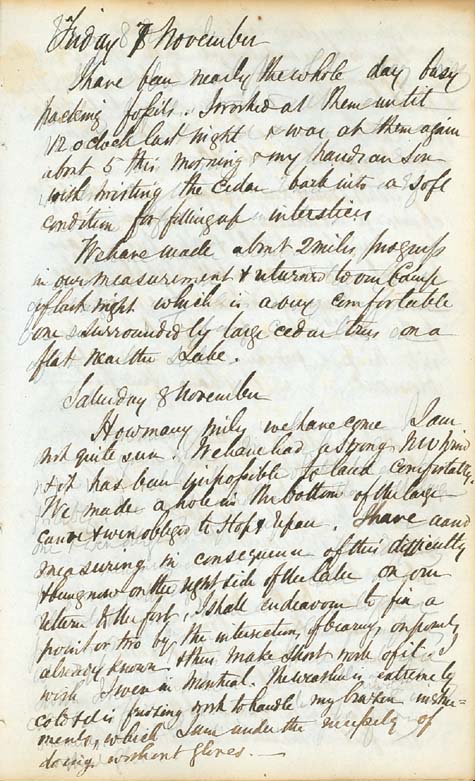 Friday 7 November
I have been nearly the whole day busy
packing fossils. I worked at them until
12 o clock last night & was at them again
about 5 this morning & my hands are sore
with twisting the cedar bark into a soft
condition for filling up interstices
We have made about 2 miles progress
in our measurement & returned to our Camp
of last night which is a very comfortable
one surrounded by large cedar trees on a
flat near the Lake.
Saturday 8 November
How many miles we have come I am
not quite sure. We have had a strong NW Wind
& it has been impossible to land comfortably.
We made a hole in the bottom of the large
canoe & were obliged to Stop & repair. I have
measuring in consequence of this difficulty
& being now on the right side of the lake on our
return to the fort. I shall endeavour to fix a
point or two by the intersection of bearings on points
already known & thus make short work of it. I
wish I were in Montreal. The weather is extremely
cold & it is freezing work to handle my brazen instru-
ments, which I am under the necessity of
doing without gloves.